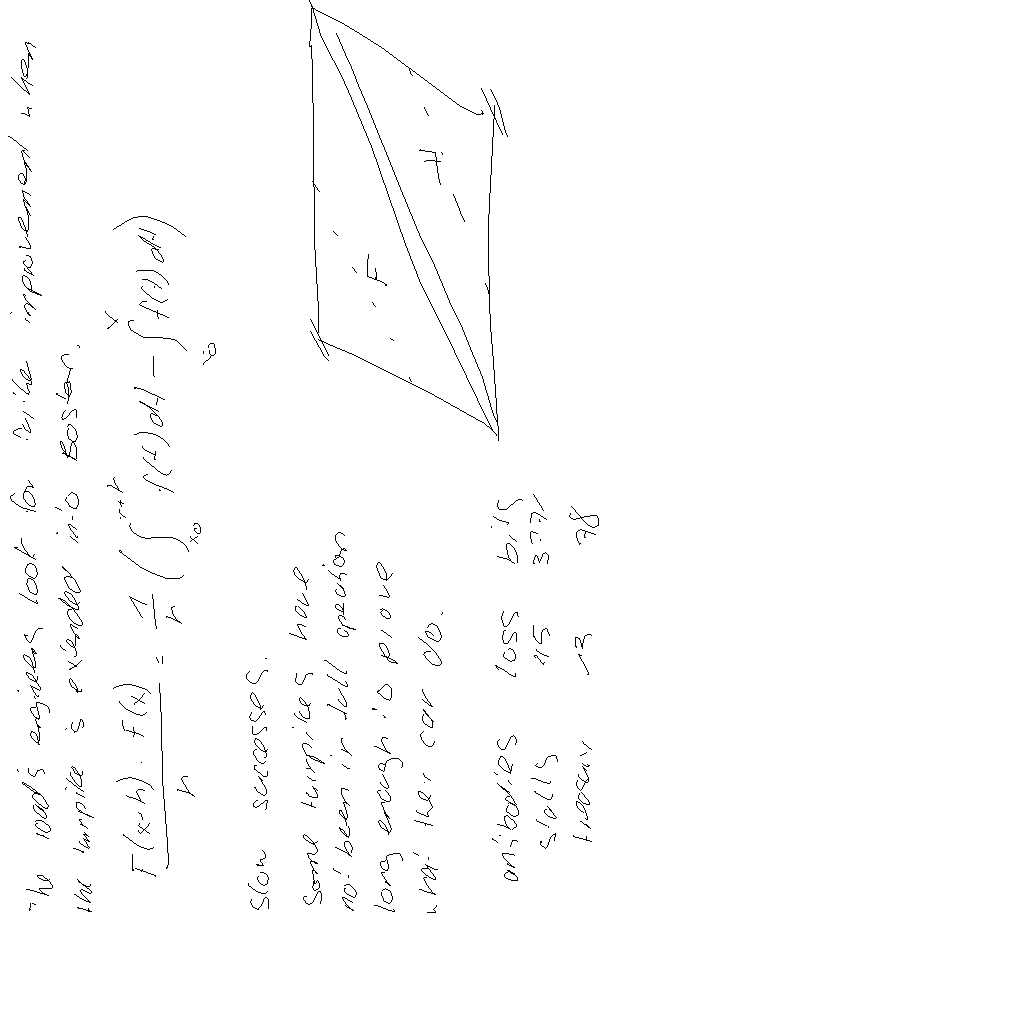 The road's engineers look for in the improvement when
the turnpike is extended into Boston.
F(x+h) - F(x) / h = 1/h ( ∫_{x0}^{x+h} f(t) dt - ∫_{x0}^{x} f(t) dt )
Slow successes.
Some turnpikes have
not been in full operation
long enough to prove
what their can do.
F
H
antibodies loss bits
stalls 15 377
treasury 78